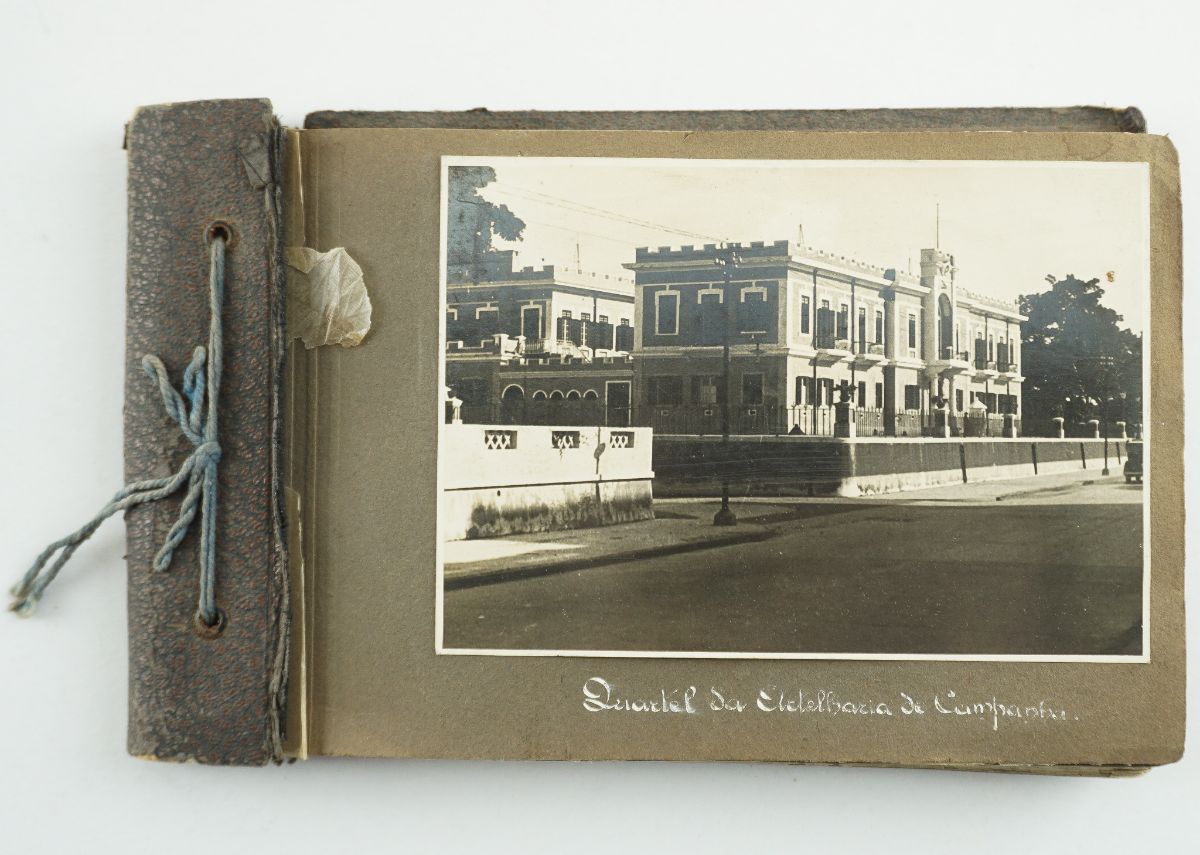 Quartel da Artelharia de Campanha.